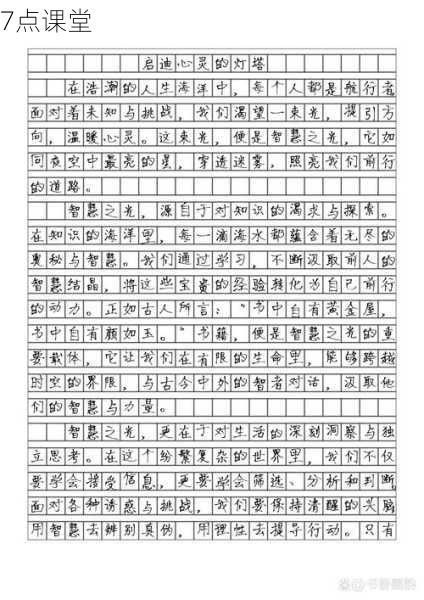 7点课堂
启迪心灵的灯塔
在浩瀚的人生海洋中，每个人都是航行者
面对着未知与挑战，我们渴望一束光，提引方
向，温暖心灵。这束光，便是智慧之光，它如
同夜空中最亮的星，穿透迷雾，照亮我们前行
的道路。
智慧之光，源自于对知识的渴求与探索。
在知识的海洋里，每一滴海水都蕴含着无尽的
奥秘与智慧。我们通过学习，不断汲取前人的
智慧结晶，将这些宝贵的经验转化为自己前行
的动力。正如古人所言：“书中自有黄金屋，
书中自有颜如玉。”书籍，便是智慧之光的重
要载体，它让我们在有限的生命里，能够跨越
时空的界限，与古今中外的智者对话，汲取他
们的智慧与力量。
智慧之光，更在于对生活的深刻洞察与独
立思考。在这个纷繁复杂的世界里，我们不仅
要学会接受信息，更要学会筛选、分析和判断。
面对各种诱惑与挑战，我们要保持清醒的头脑
用智慧去辨别真伪，用理性去提导行动。只有